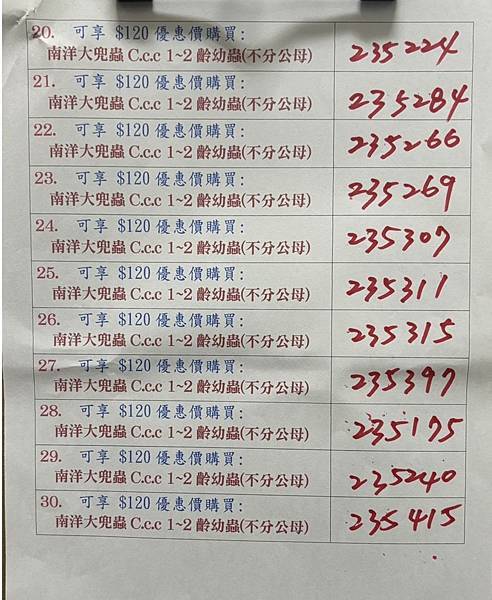 20. 可享 $120 優惠價購買:
南洋大兜蟲 C.c.c 1~2 齡幼蟲(不分公母)
235224
21. 可享 $120 優惠價購買:
南洋大兜蟲 C.c.c 1~2 齡幼蟲(不分公母)
235284
22. 可享 $120 優惠價購買:
南洋大兜蟲 C.c.c 1~2 齡幼蟲(不分公母)
235266
23. 可享 $120 優惠價購買:
南洋大兜蟲 C.c.c 1~2 齡幼蟲(不分公母)
235269
24. 可享 $120 優惠價購買:
南洋大兜蟲 C.c.c 1~2 齡幼蟲(不分公母)
235307
25. 可享 $120 優惠價購買:
南洋大兜蟲 C.c.c 1~2 齡幼蟲(不分公母)
235311
26. 可享 $120 優惠價購買:
南洋大兜蟲 C.c.c 1~2 齡幼蟲(不分公母)
235315
27. 可享 $120 優惠價購買:
南洋大兜蟲 C.c.c 1~2 齡幼蟲(不分公母)
235397
28. 可享 $120 優惠價購買:
南洋大兜蟲 C.c.c 1~2 齡幼蟲(不分公母)
235175
29. 可享 $120 優惠價購買:
南洋大兜蟲 C.c.c 1~2 齡幼蟲(不分公母)
235240
30. 可享 $120 優惠價購買:
南洋大兜蟲 C.c.c 1~2 齡幼蟲(不分公母)
235415